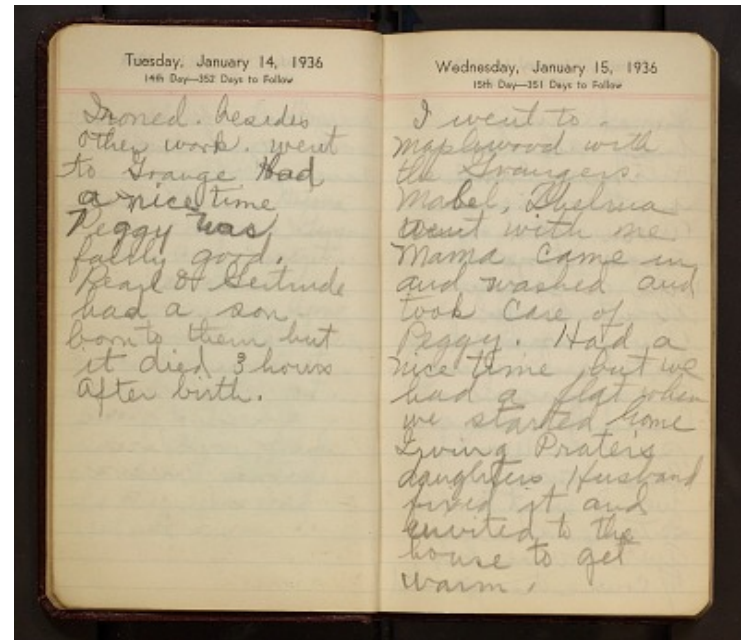 Tuesday, January 14, 1936
14th Day—352 Days to Follow
Ironed. besides
other work. went
to Grange Had
a nice time
Peggy was
fairly good.
Pearl & Gertrude
had a son
born to them but
it died 3 hours
after birth.
Wednesday, January 15, 1936
15th Day—351 Days to Follow
I went to
Maplewood with
the Grangers.
Mabel, Thelma
went with me
Mama came in
and washed and
took care of
Peggy. Had a
nice time but we
had a flat when
we started home
Irving Praters
daughters Husband
fixed it and
invited to the
house to get
warm.